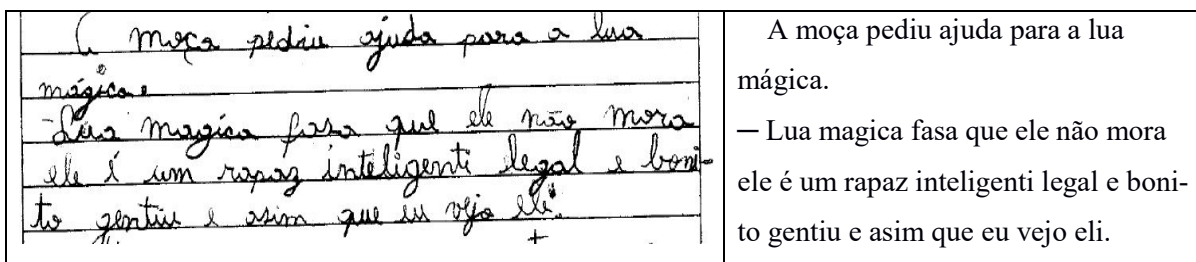 A moça pediu ajuda para a lua
mágica.
- Lua magica fasa que ele não mora
ele é um rapaz inteligenti legal e boni-
to gentiu e asim que eu vejo eli.
A moça pediu ajuda para a lua
mágica.
─ Lua magica fasa que ele não mora
ele é um rapaz inteligenti legal e boni-
to gentiu e asim que eu vejo eli.